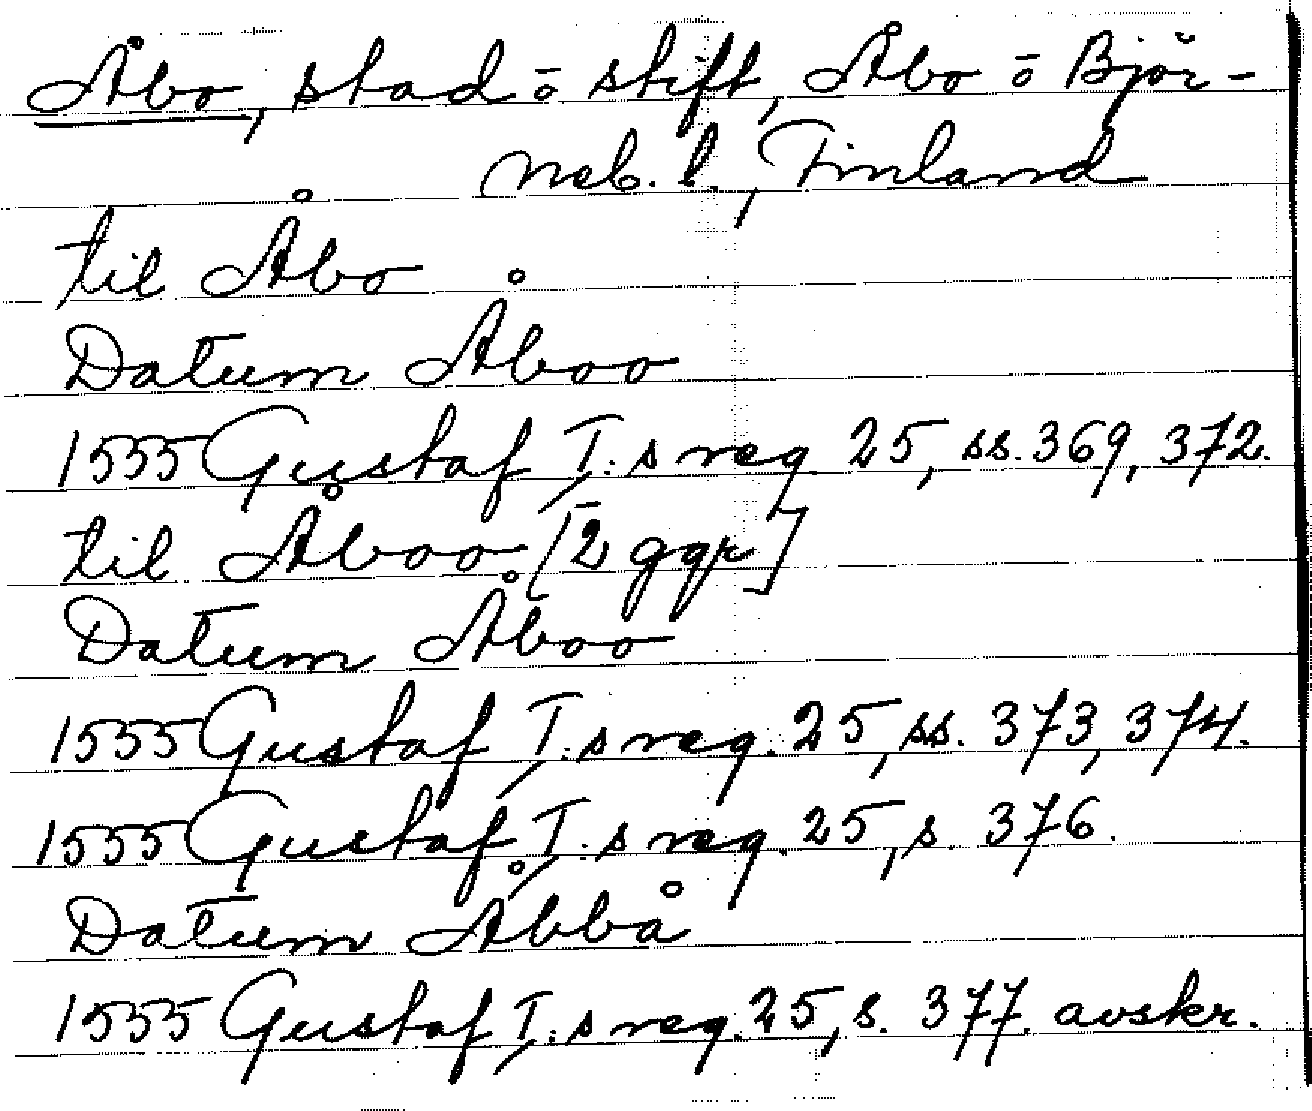 Åbo, stad ō stift, Åbo ō Björ-
neb. l., Finland
til Åbo
Datum Åboo
1555 Gustaf I:s reg 25, ss. 369, 372.
til Åboo [2 ggr]
Datum Åboo
1555 Gustaf I:s reg. 25, ss. 373, 374.
1555 Gustaf I:s reg. 25, s. 376.
Datum Åbbå
1555 Gustaf I:s reg. 25, s. 377 avskr.